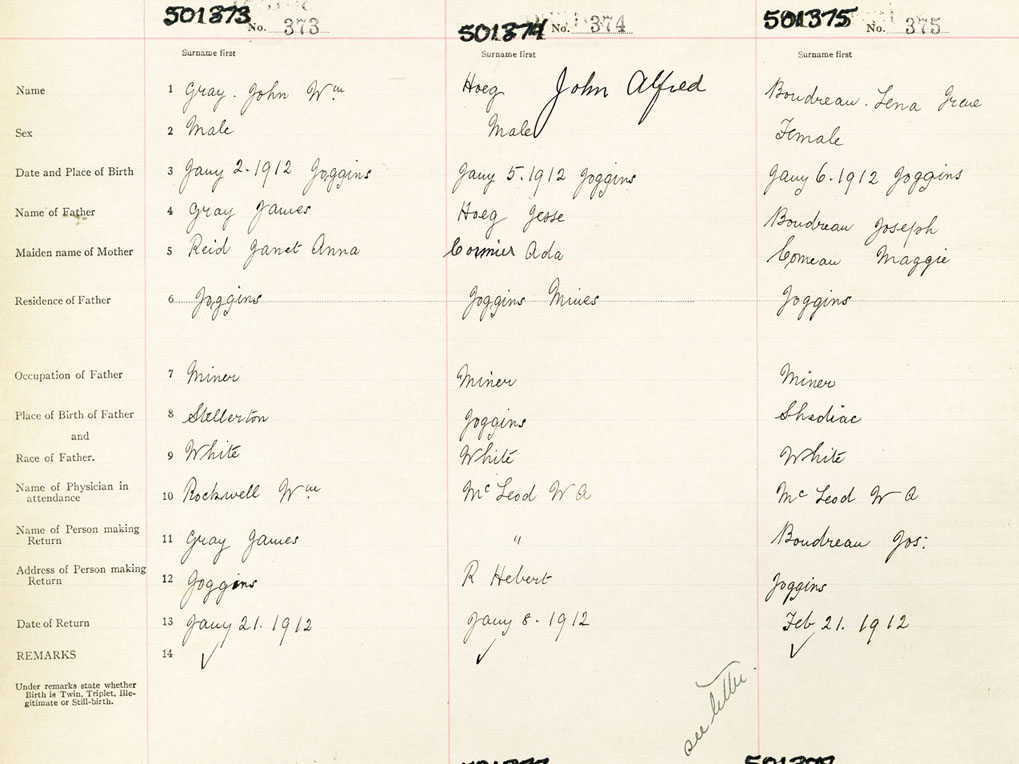 501373 No. 373 501374 No. 374 501375 No. 375
Surname first Surname first Surname first
Name 1 Gray. John Wm Hoeg John Alfred Boudreau. Lena Irene
Sex 2 Male Male Female
Date and Place of Birth 3 Jany 2. 1912 Joggins Jany 5. 1912 Joggins Jany 6. 1912 Joggins
Name of Father 4 Gray James Hoeg Jesse Boudreau Joseph
Maiden name of Mother 5 Reid Janet Anna Cormier Ada Comeau Maggie
Residence of Father 6 Joggins Joggins Mines Joggins
Occupation of Father 7 Miner Miner Miner
Place of Birth of Father 8 Stellerton Joggins Shediac
and
Race of Father. 9 White White White
Name of Physician in
attendance 10 Rockwell Wm McLeod W A McLeod W A
Name of Person making
Return 11 Gray James " Boudreau Jos:
Address of Person making
Return 12 Joggins R Hebert Joggins
Date of Return 13 Jany 21. 1912 Jany 8. 1912 Feb 21. 1912
REMARKS 14 ✓ ✓ ✓
Under remarks state whether
Birth is Twin, Triplet, Ille-
gitimate or Still-birth.
see letter